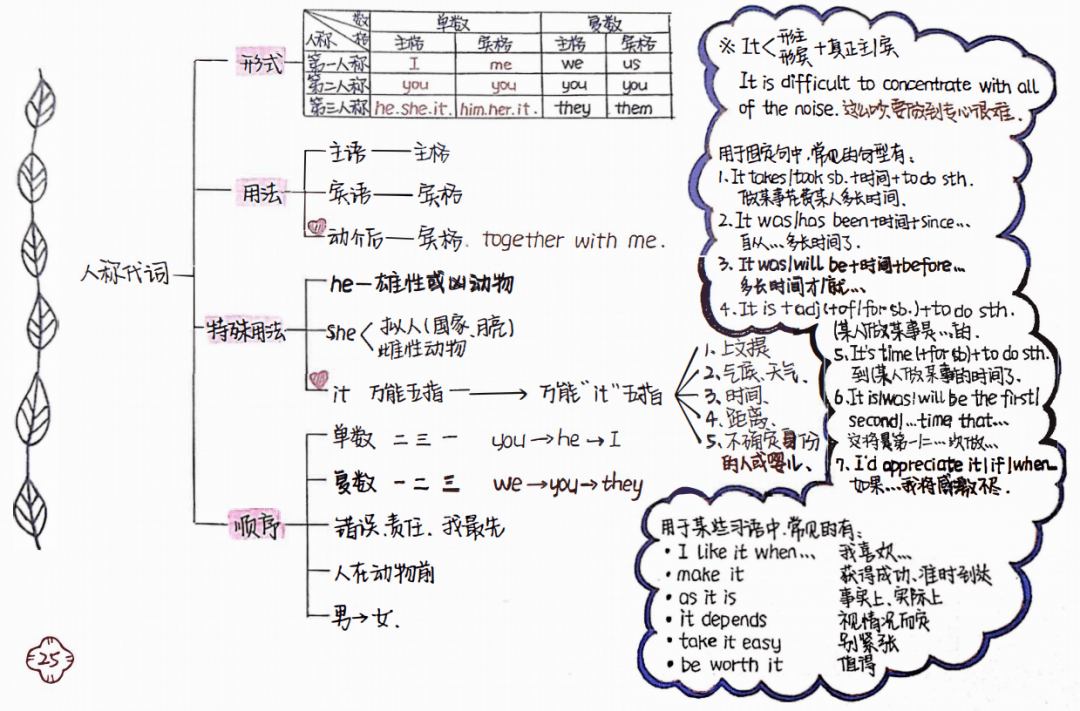 人称代词
形式
数
人称 格
单数 复数
主格 宾格 主格 宾格
第一人称 I me we us
第二人称 you you you you
第三人称 he.she.it. him.her.it. they them
用法
主语——主格
宾语——宾格
动介后——宾格. together with me.
特殊用法
he—雄性或凶动物
she< 拟人(国家、月亮)
雌性动物
it 万能五指 ⟶ 万能"it"五指
1. 上文提
2. 气候、天气、
3. 时间、
4. 距离、
5. 不确定身份
的人或婴儿、
顺序
单数 二三一 you→he→I
复数 一二三 we→you→they
错误.责任.我最先
人在动物前
男→女.
※ It< 形主
形宾 +真正主/宾
It is difficult to concentrate with all
of the noise. 这么吵,要做到专心很难.
用于固定句中,常见的句型有:
1.It takes/took sb.+时间+to do sth.
做某事花费某人多长时间.
2.It was/has been+时间+since...
自从...多长时间了.
3. It was/will be+时间+before...
多长时间才/就...
4.It is +adj(+of/for sb.)+to do sth.
(某人)做某事是...的.
5.It's time(+for sb)+to do sth.
到(某人)做某事的时间了.
6.It is/was/will be the first/
second/...time that...
这将是第一/二...次做...
7. I'd appreciate it/if/when
如果...我将感激不尽.
用于某些习语中,常见的有:
• I like it when... 我喜欢...
• make it 获得成功、准时到达
• as it is 事实上、实际上
• it depends 视情况而定
• take it easy 别紧张
• be worth it 值得
25